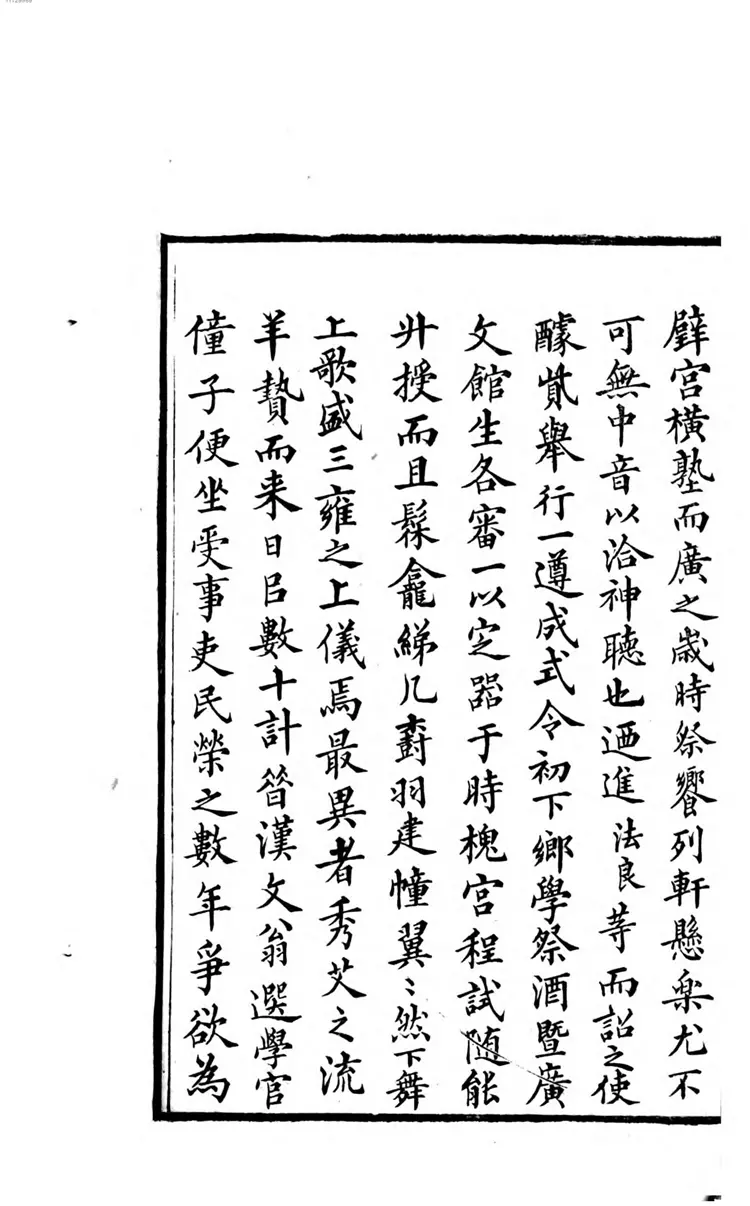 辟宫横塾而廣之歳時祭饗列軒懸樂尤不
可無中音以洽神聽也迺進法良䓁而詔之使
醵貲舉行一遵成式令初下鄉學祭酒暨廣
文館生各審一以定器于時槐宫程試随能
廾授而且髹龕綈几翿羽建幢翼〻然下舞
上歌盛三雍之上儀焉最異者秀艾之流
羊贄而来日㠯數十計昝漢文翁選學官
僮子便坐受事吏民榮之數年爭欲為